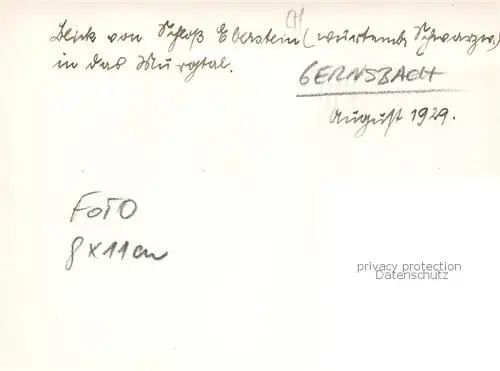 Blick von Schloß Eberstein (württemb. Schwarzw.)
in das Murgtal.
GERNSBACH
August 1929.
FOTO
8 x 11 cm
privacy protection
Datenschutz